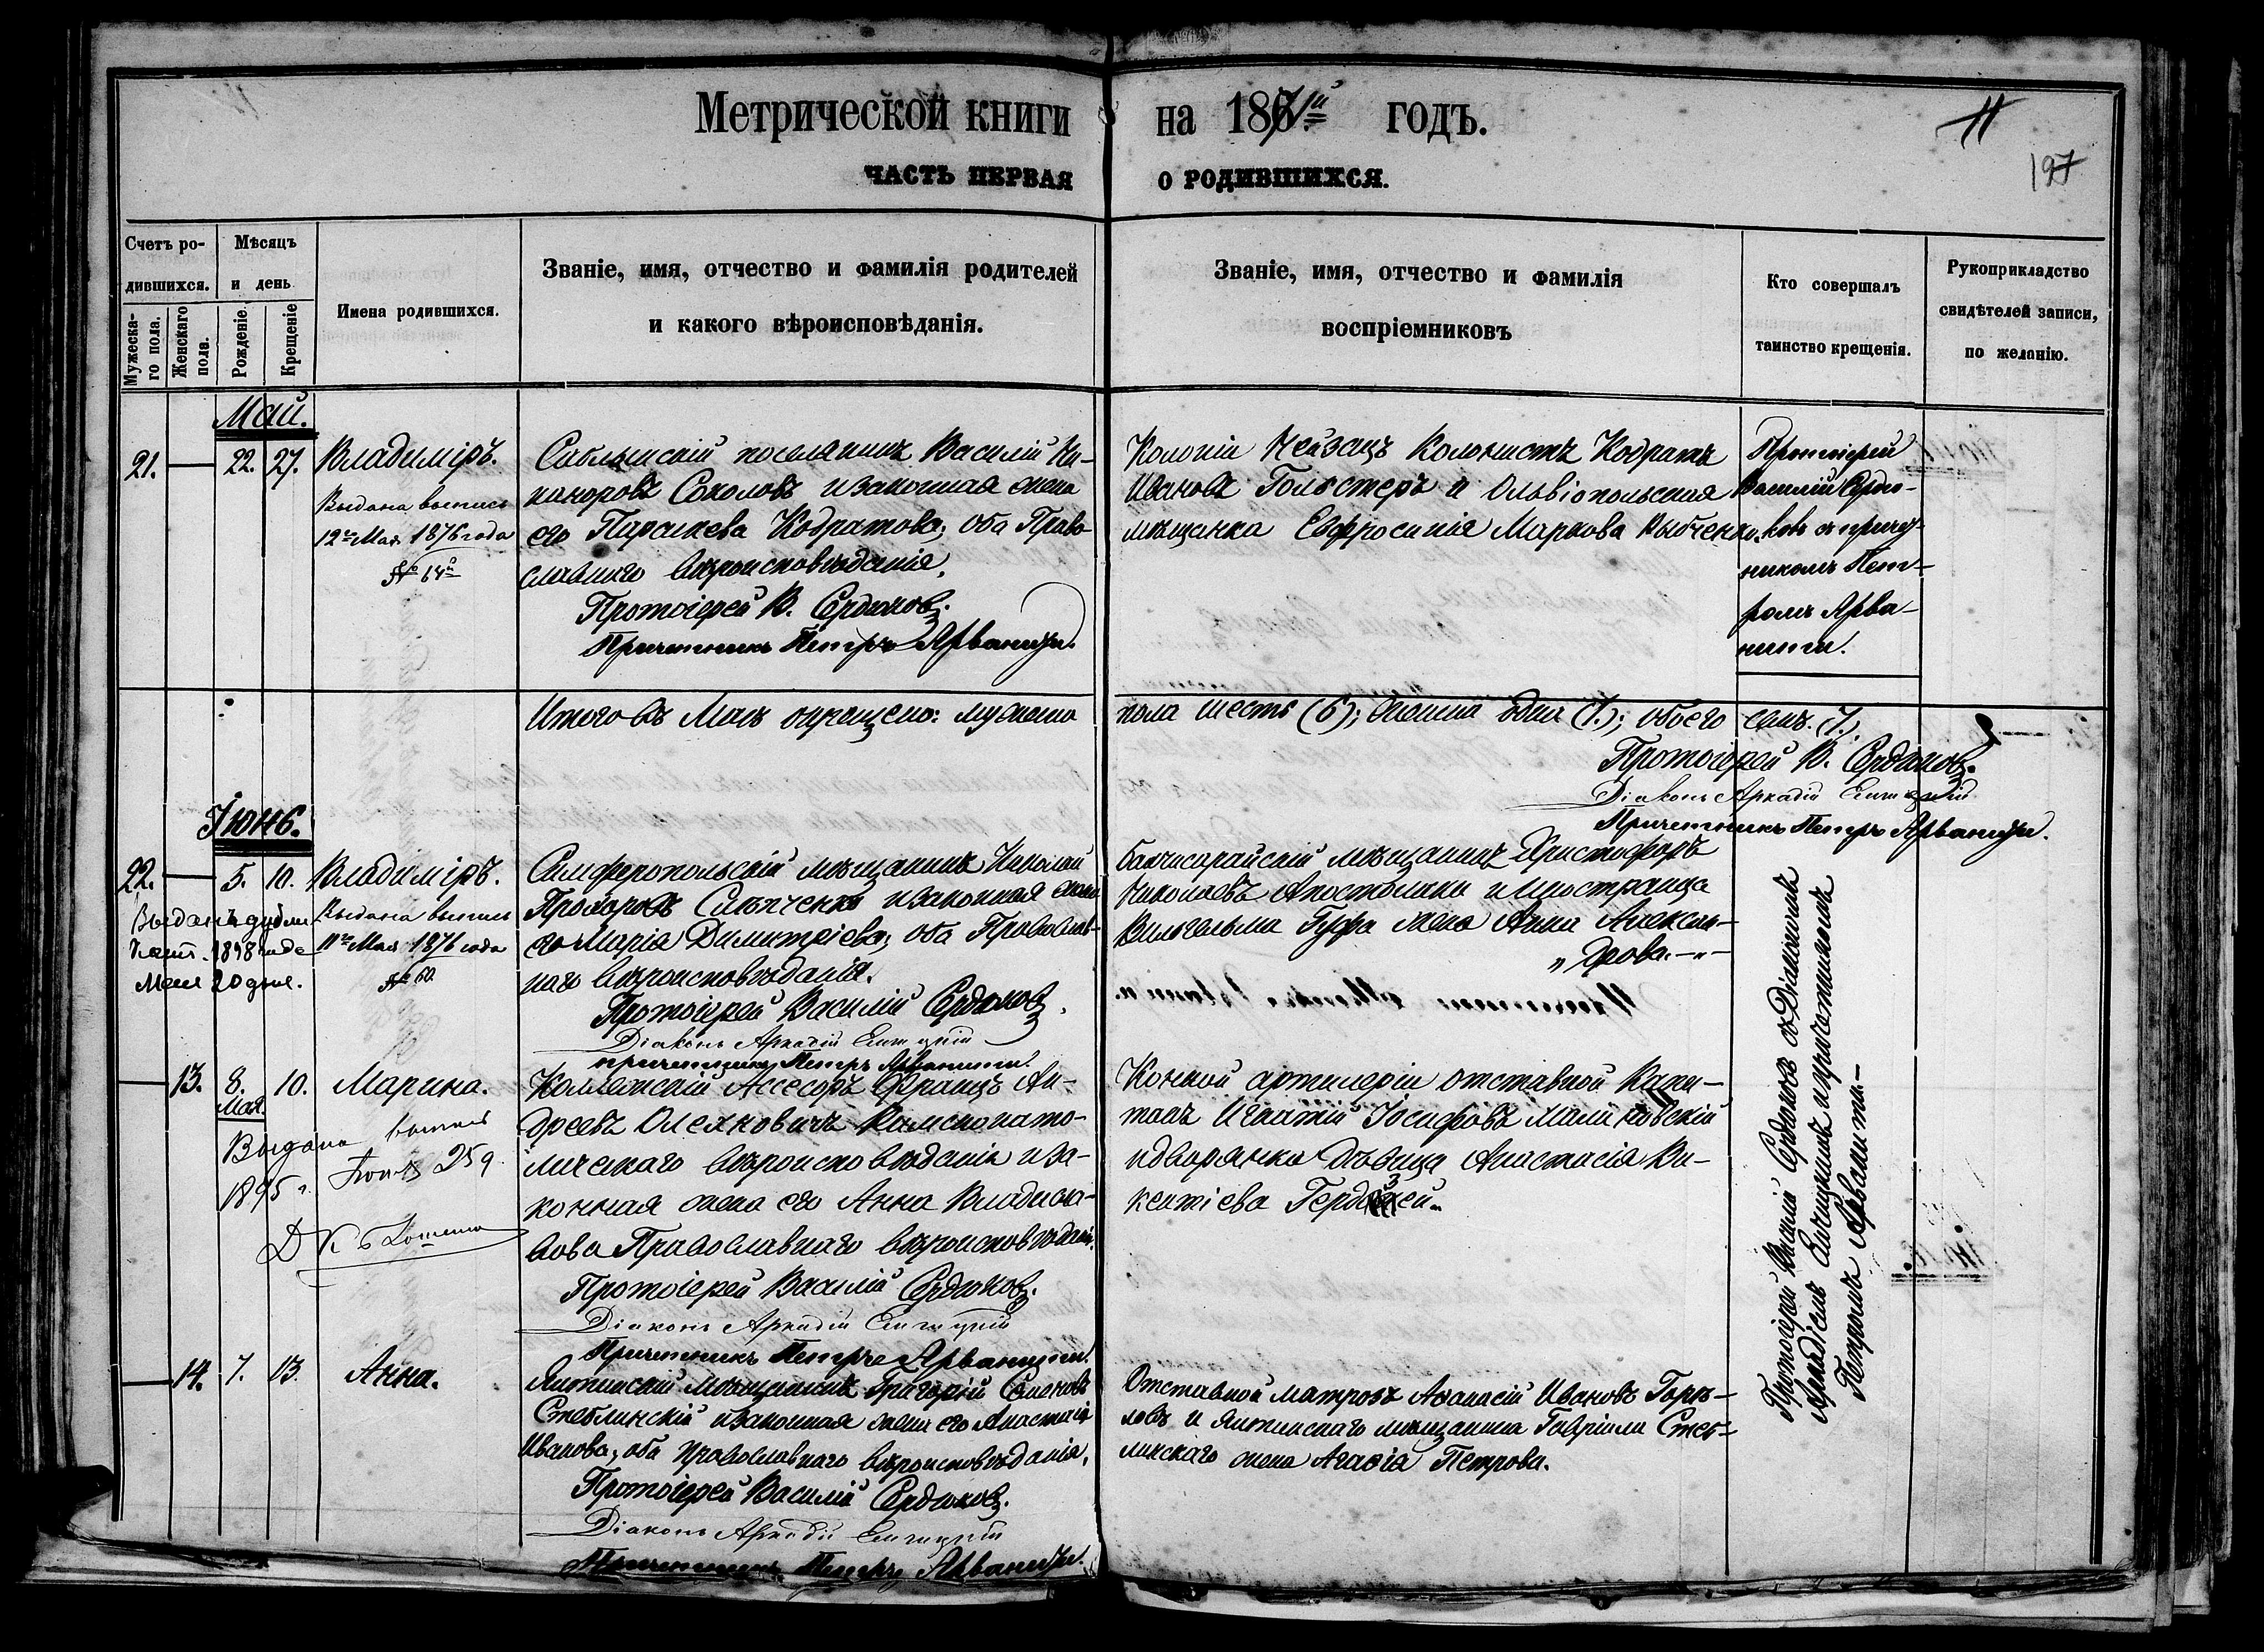 Метрической книги на 1871й годъ.
11
197
ЧАСТЬ ПЕРВАЯ О РОДИВШИХСЯ.
Счетъ родившихся.
Мужеска-
го пола.
Женскаго
пола.
Мѣсяцъ
и день
Рожденіе.
Крещеніе
Имена родившихся.
Званіе, имя, отчество и фамилія родителей
и какого вѣроисповѣданія.
Званіе, имя, отчество и фамилія
воспріемниковъ
Кто совершалъ
таинство крещенія.
Рукоприкладство
свидѣтелей записи,
по желанію.
Май.
21. — 22. 27. Владиміръ.
Выдана выпись
12го Мая 1876 года
№ 64й
Саблынскій поселянинъ Василій Ни-
каноровъ Соколовъ и законная жена
его Параскева Кодратова; оба Право-
славнаго вѣроисповѣданія.
Протоіерей В. Сердюковъ.
Причетникъ Петръ Арванити.
Колоніи Нейзацъ Колонистъ Кодратъ
Ивановъ Гольстеръ и Ольвіопольская
мѣщанка Евфросинія Маркова
Протоіерей
Василій Сердю-
ковъ съ причет-
никомъ Пет-
ромъ Арва-
нити.
Итого въ Маѣ окрещено: мужеска
пола шесть (6); женска одна (1.); обоего семь. (7.)
Протоіерей В. Сердюковъ.
Діаконъ Аркадій
Причетникъ Петръ Арванити.
Іюнь.
22. — 5. 10. Владиміръ.
Выданъ дубли
катъ 1898 года
Мая 20 дня.
Выдана выпись
11го Мая 1876 года
№ 60.
Симферопольскій мѣщанинъ Николай
Прохоровъ и законная жена
его Марія Димитріева; оба Православ-
наго вѣроисповѣданія.
Протоіерей Василій Сердюковъ.
Діаконъ Аркадій
Причетникъ Петръ Арванити.
Бахчисарайскій мѣщанинъ Христофоръ
Николаевъ Апостолиди и иностранца
Вильгельма Гуфа жена Анна Алексан-
„ дрова. —„—
— 13. 8. 10. Марина.
Мая.
Выдана выпись
1895 г. 259
Коллежскій Ассесоръ Францъ Ан-
дреевъ Олехновичъ Римскокато-
лическаго вѣроисповѣданія и за-
конная жена его Анна Владисла-
вова Православнаго вѣроисповѣданія.
Протоіерей Василій Сердюковъ.
Діаконъ Аркадій
Причетникъ Петръ Арванити.
Конной артилеріи отставной Капи-
танъ Игнатій Іосифовъ
и дворянка дѣвица Анастасія Ви-
кентіева
— 14. 7. 13. Анна.
Ялтинскій мѣщанинъ Григорій Семеновъ
Стеблинскій и законная жена его Анастасія
Иванова; оба православнаго вѣроисповѣданія.
Протоіерей Василій Сердюковъ.
Діаконъ Аркадій
Причетникъ Петръ Арванити.
Отставной матрозъ Аѳанасій Ивановъ
и Ялтинскаго мѣщанина Гавріила Стеб-
линскаго жена Агаѳія Петрова.
Протоіерей Василій Сердюковъ съ Діакономъ
Аркадіемъ и причетникомъ
Петромъ Арванити.—